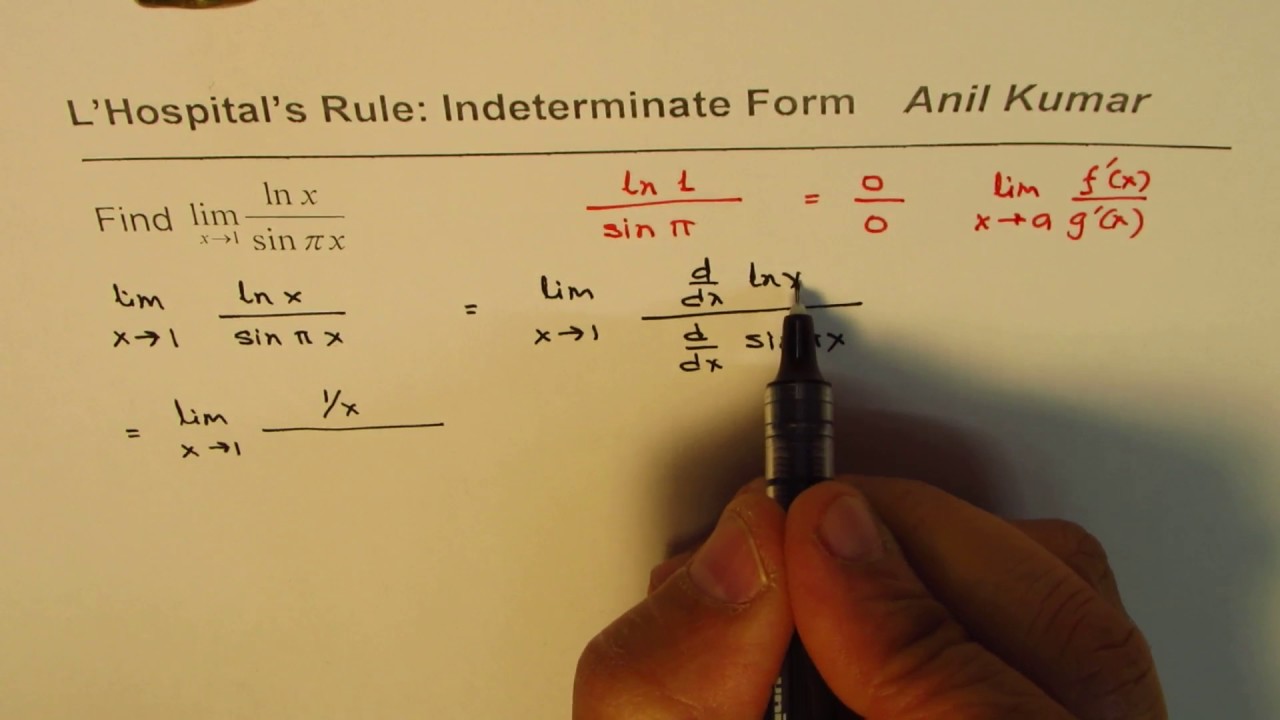 L'Hospital's Rule: Indeterminate Form Anil Kumar
Find lim x→1 ln x / sin πx
ln 1 / sin π = 0 / 0
lim x→a f'(x) / g'(x)
lim x→1 ln x / sin π x = lim x→1 d/dx ln x / d/dx
= lim x→1 1/x